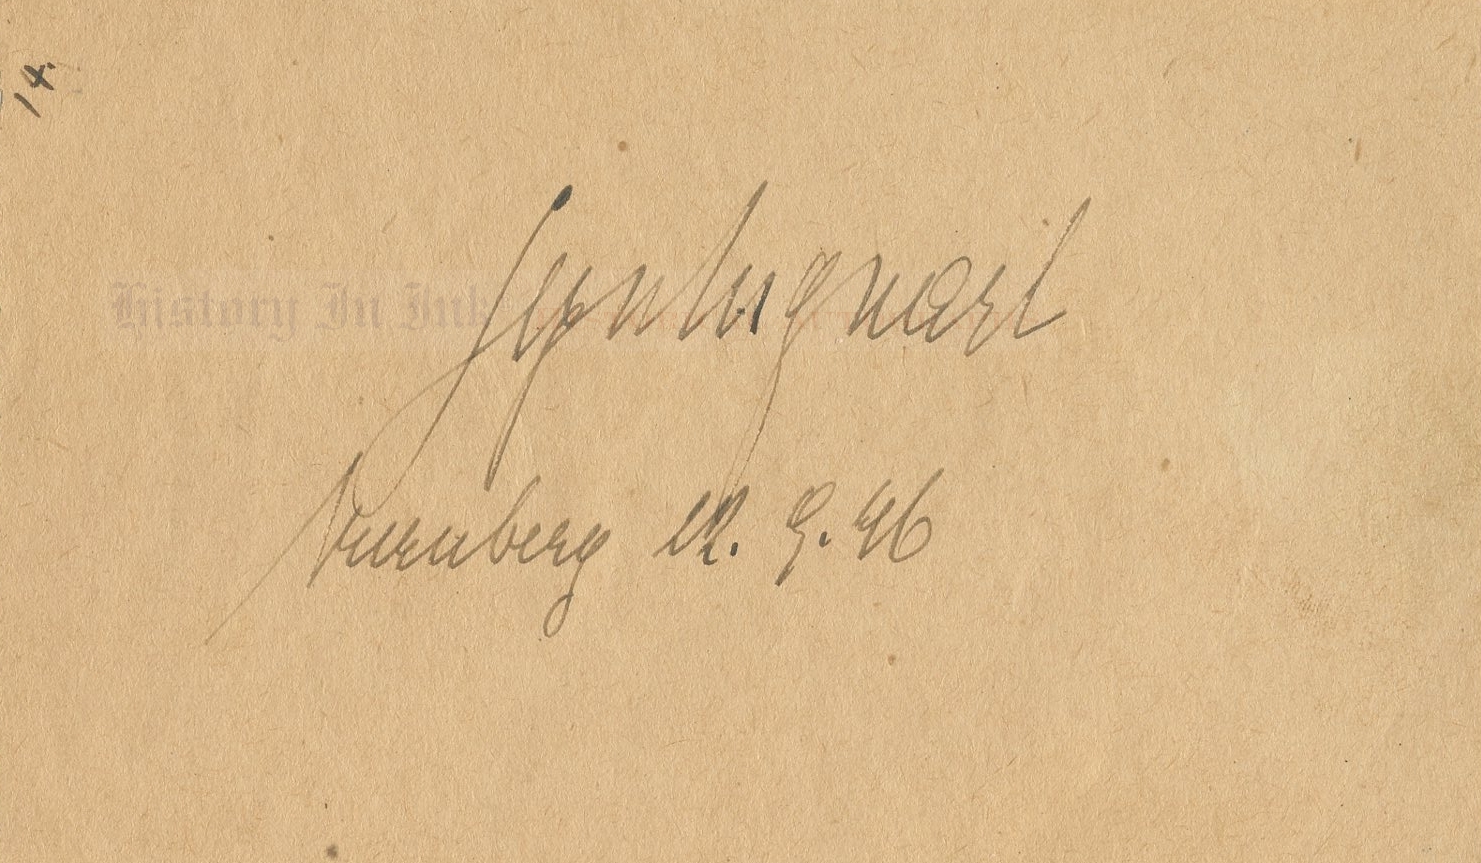 14
History In Ink
Seyss-Inquart
Nürnberg 12. 9. 46